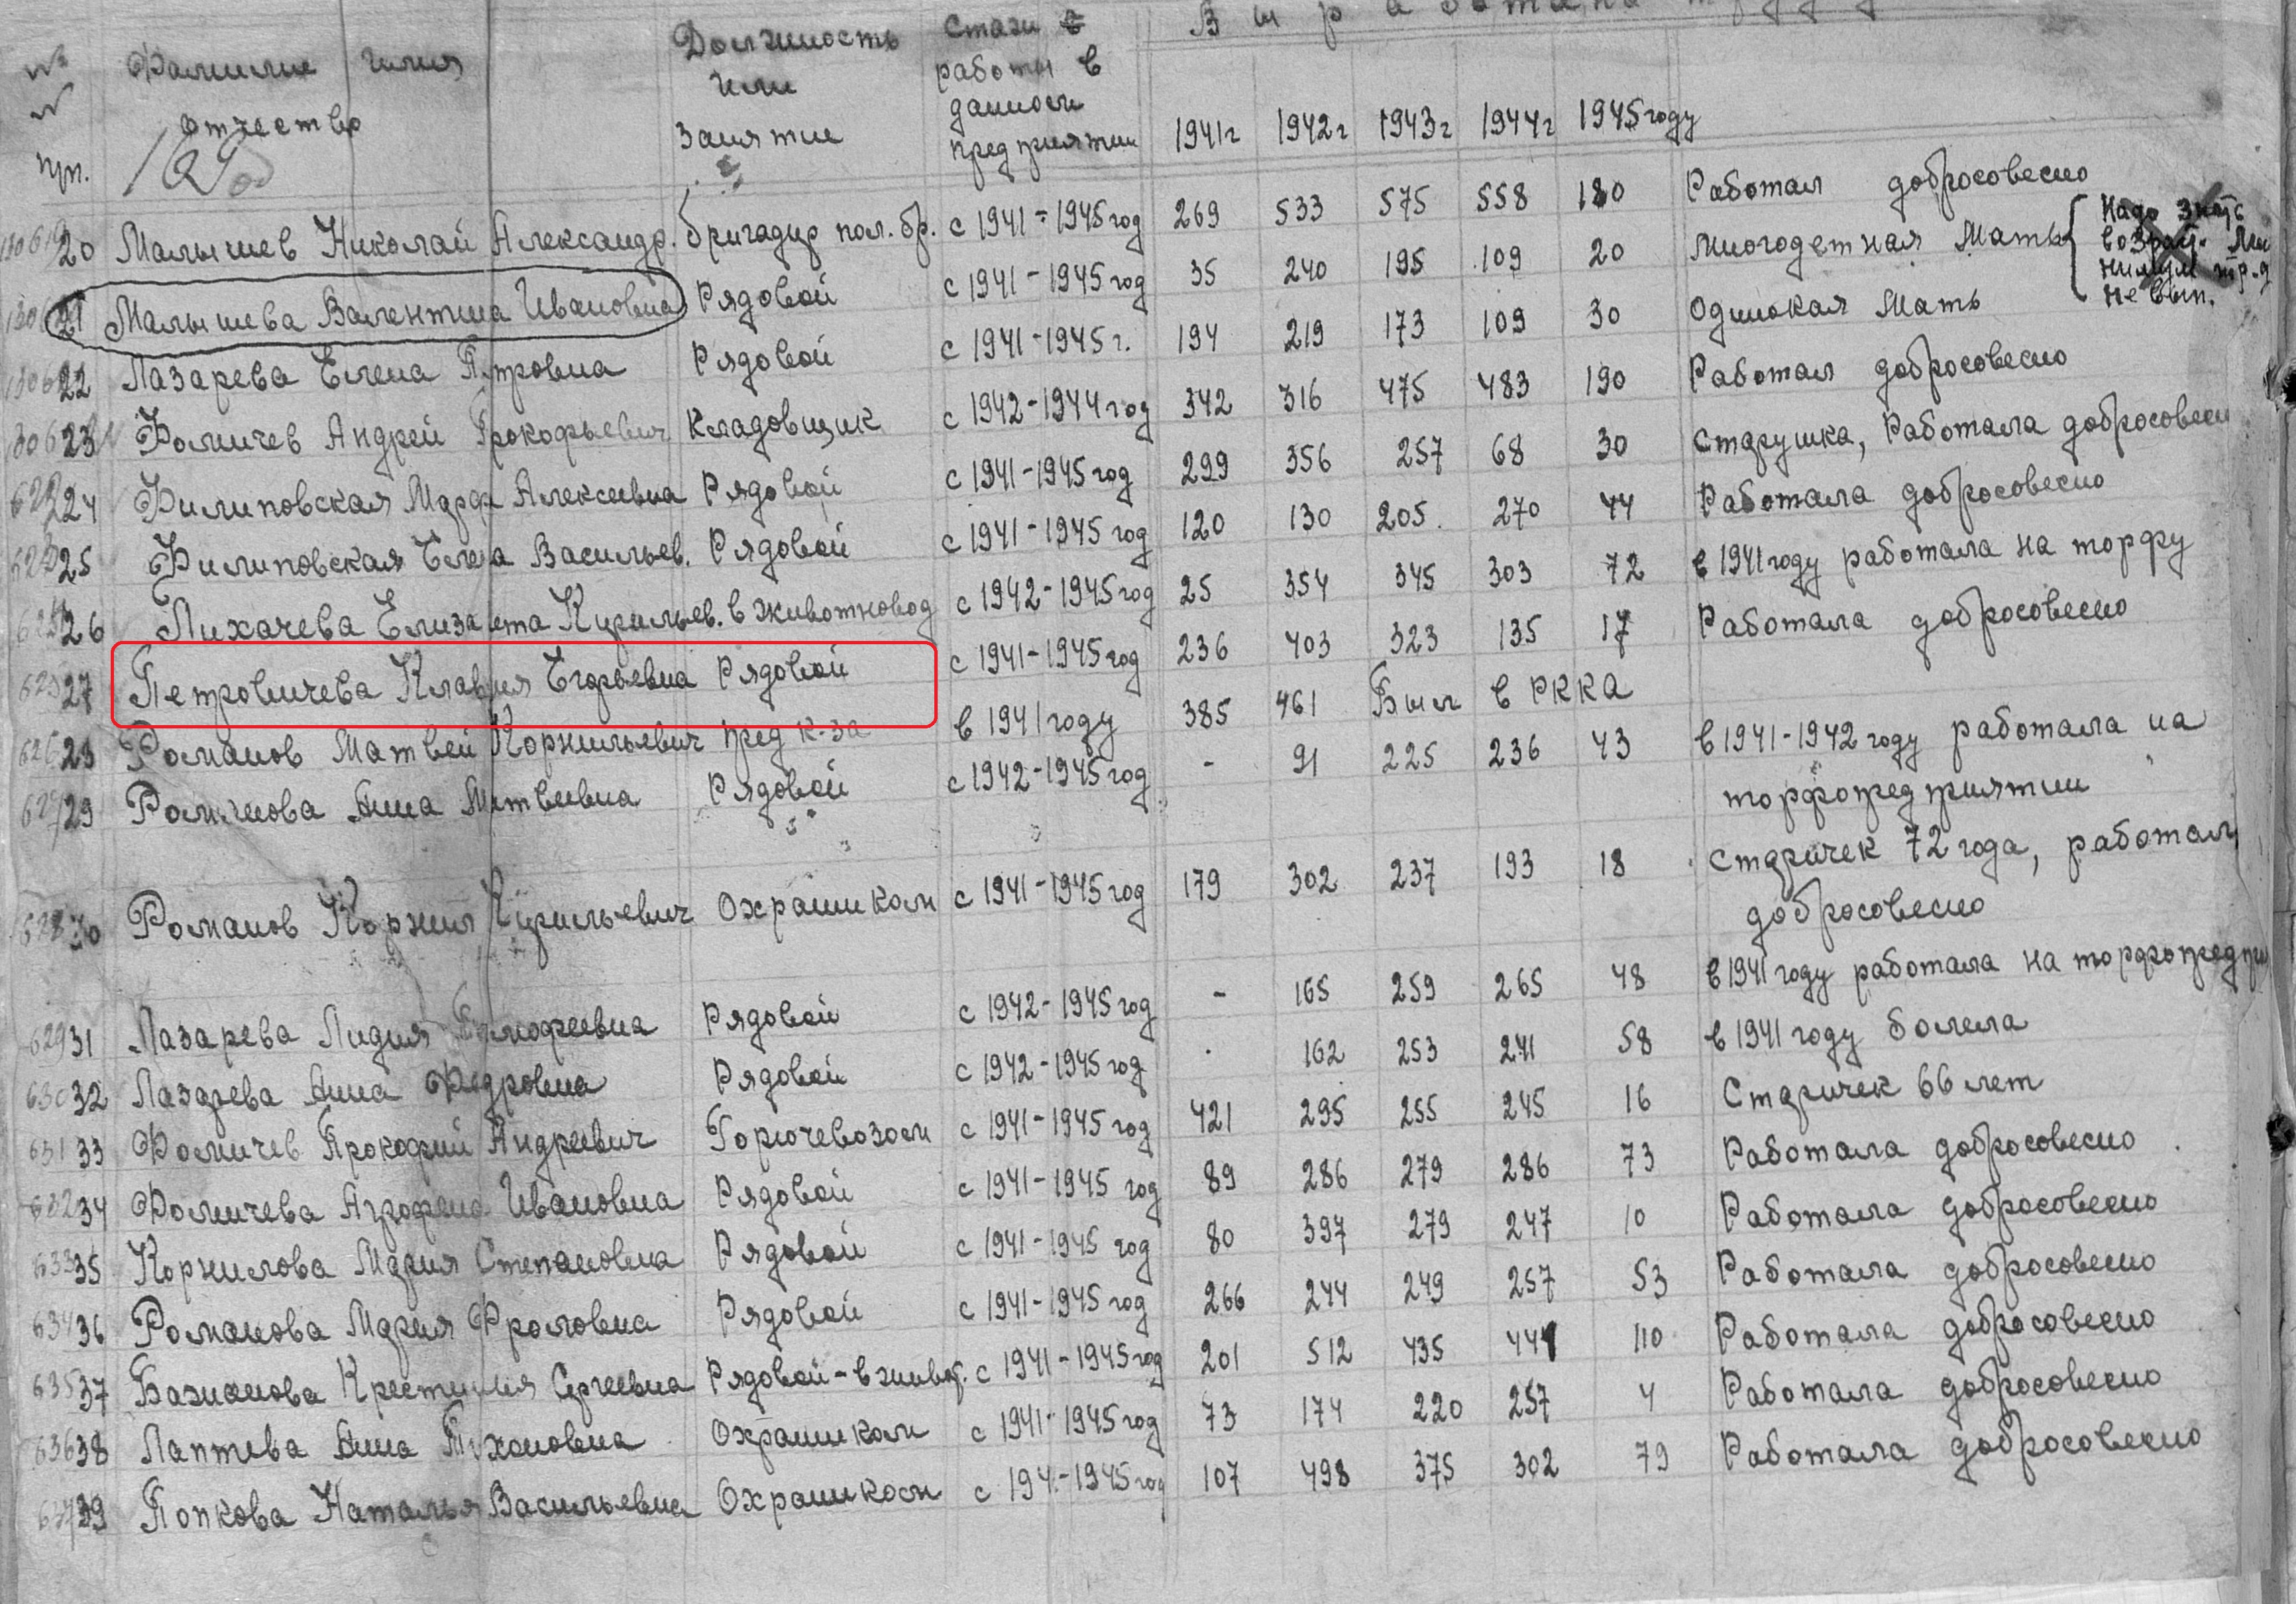 № Фамилие имия Должность Стаж работы в В ы р а ботана
или данном
пп. отчество Занятие предприятии 1941г 1942г 1943г 1944г 1945 году
20 Малышев Николай Александр. бригадир пол. бр. с 1941-1945 год 269 533 575 558 180 Работал добросовесно
21 Малышева Валентина Ивановна Рядовой с 1941-1945 год 35 240 195 109 20 Многодетная Мать
Надо знать
возраст. Ми
нимум тр.д
не вып.
22 Лазарева Елена Петровна Рядовой с 1941-1945 г. 194 219 173 109 30 Одинокая Мать
23 Фомичев Андрей Прокофьевич Кладовщик с 1942-1944 год 342 316 475 483 190 Работал добросовесно
24 Филиповская Марфа Алексеевна Рядовой с 1941-1945 год 299 356 257 68 30 Старушка, Работала добросовесн
25 Филиповская Елена Васильев. Рядовой с 1941-1945 год 120 130 205 270 44 Работала добросовесно
26 Лихачева Елизавета Кирильев. в животновод с 1942-1945 год 25 354 345 303 72 в 1941 году работала на торфу
27 Петровичева Клавдия Егорьевна Рядовой с 1941-1945 год 236 403 323 135 17 Работала добросовесно
28 Романов Матвей Корнильевич пред к-за в 1941 году 385 461 Был в РККА
29 Романова Анна Матвеевна Рядовой с 1942-1945 год - 91 225 236 43 в 1941-1942 году работала на
торфопредприятии
30 Романов Корнил Кирильевич Охранником с 1941-1945 год 179 302 237 193 18 Старичек 72 года, работал
добросовесно
31 Лазарева Лидия Тимофеевна Рядовой с 1942-1945 год - 165 259 265 48 в 1941 году работала на торфопредпри
32 Лазарева Анна Федровна Рядовой с 1942-1945 год . 162 253 241 58 в 1941 году болела
33 Фомичев Прокофий Андреевич Горючевозом с 1941-1945 год 421 295 255 245 16 Старичек 66 лет
34 Фомичева Агрофена Ивановна Рядовой с 1941-1945 год 89 286 279 286 73 Работала добросовесно
35 Корнилова Мария Степановна Рядовой с 1941-1945 год 80 397 279 247 10 Работала добросовесно
36 Романова Мария Фроловна Рядовой с 1941-1945 год 266 244 249 257 53 Работала добросовесно
37 Бажанова Крестиния Сергеевна Рядовой-в живот. с 1941-1945 год 201 512 435 444 110 Работала добросовесно
38 Лаптева Анна Тихоновна Охранником с 1941-1945 год 73 174 220 257 4 Работала добросовесно
39 Попкова Наталья Васильевна Охранником с 194.-1945 год 107 498 375 302 79 Работала добросовесно